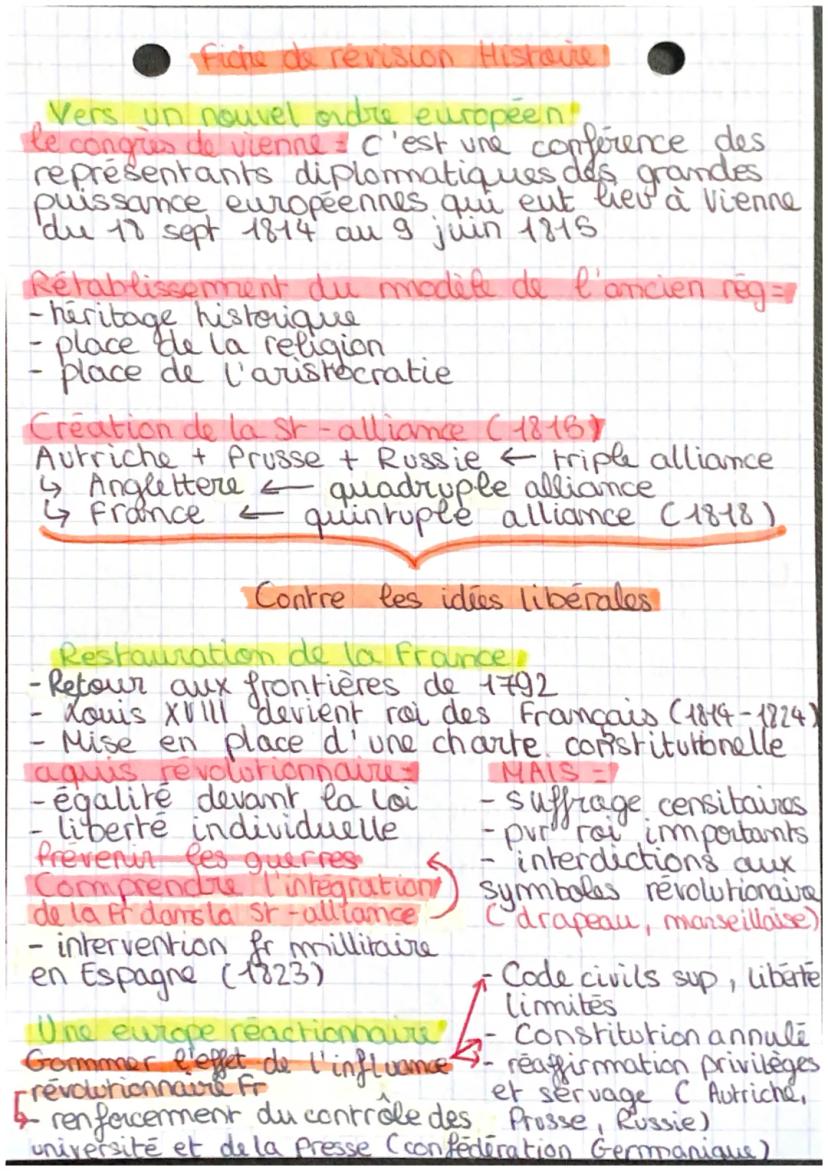 Fiche de révision Histoire
Vers un nouvel ordre européen
le congrès de vienne = c'est une conférence des
représentants diplomatiques des grandes
puissance européennes qui eut lieu à Vienne
du 18 sept 1814 au 9 juin 1815
Rétablissement du modèle de l'ancien rég =
- héritage historique
- place de la religion
- place de l'aristocratie
Création de la St-alliance (1815)
Autriche + Prusse + Russie ← triple alliance
↳ Anglettere ← quadruple alliance
↳ France ← quintuple alliance (1818)
Contre les idées libérales
Restauration de la France
- Retour aux frontières de 1792
- Louis XVIII devient roi des Français (1814-1824)
- Mise en place d'une charte constitutionelle
aquis révolutionnaire =
- égalité devant la loi
- liberté individuelle
Prévenir les guerres
Comprendre l'intégration
de la Fr dans la St-alliance
- intervention fr millitaire
en Espagne (1823)
MAIS =
- suffrage censitaires
- pvr roi importants
- interdictions aux
symboles révolutionaire
(drapeau, marseillaise)
Une europe réactionnaire
Gommer l'effet de l'influance
révolutionnaire Fr
- Code civils sup, liberté
limités
- Constitution annulé
- réaffirmation privilèges
et servage (Autriche,
Prusse, Russie)
↳ renforcement du contrôle des
université et de la presse (confédération Germanique)